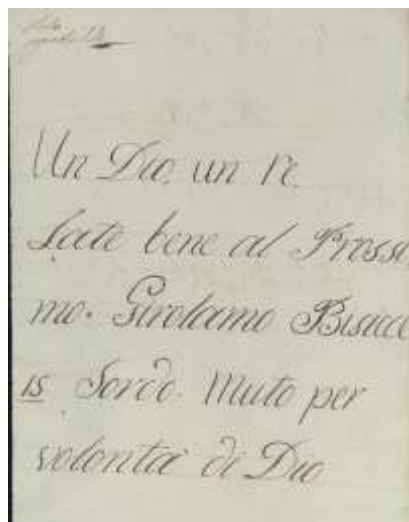 Un Dio. un re.
Fate bene al Prossi
mo. Girolamo Bisacc
is Sordo. Muto per
volontà di Dio